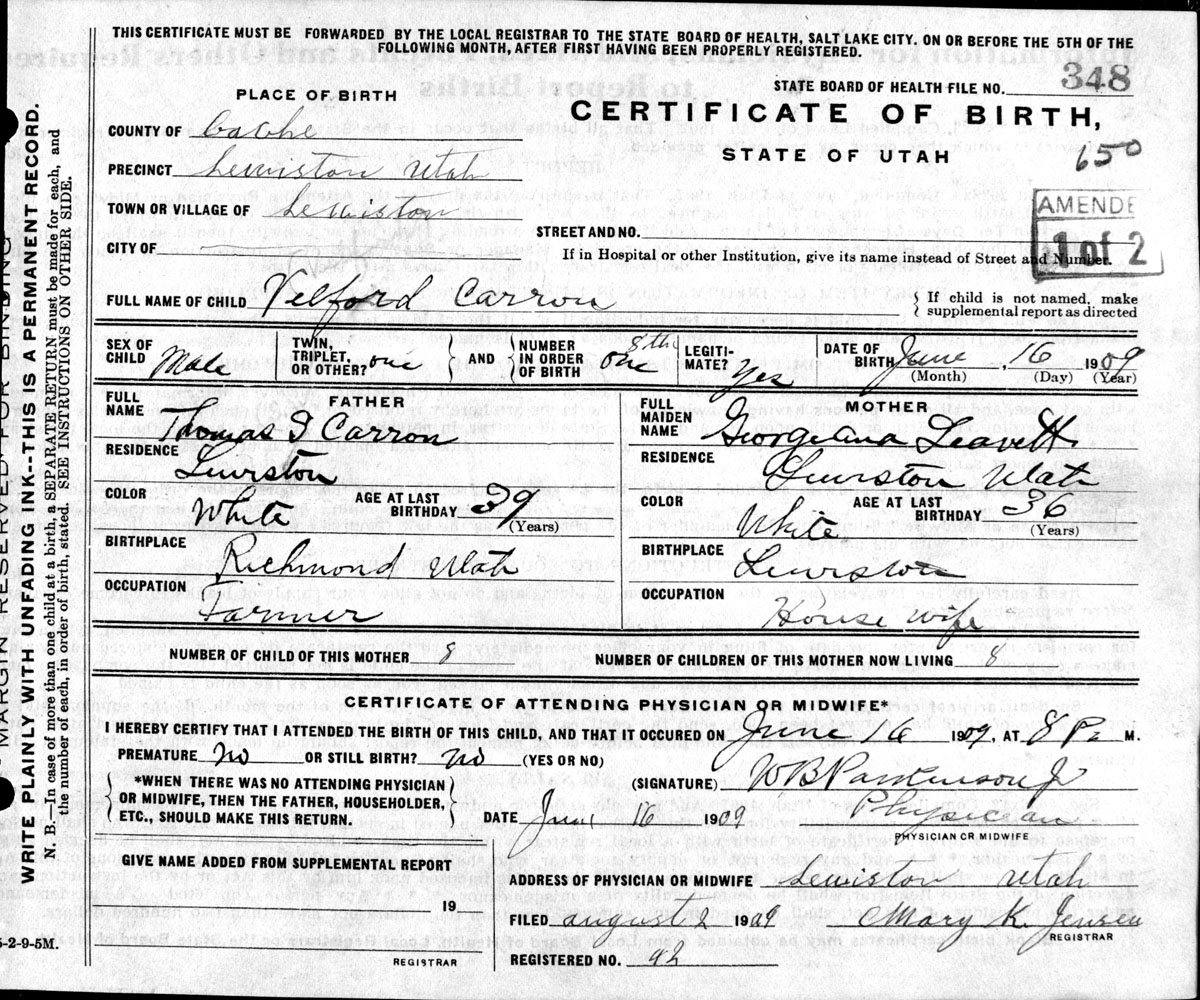 THIS CERTIFICATE MUST BE FORWARDED BY THE LOCAL REGISTRAR TO THE STATE BOARD OF HEALTH, SALT LAKE CITY. ON OR BEFORE THE 5TH OF THE
FOLLOWING MONTH, AFTER FIRST HAVING BEEN PROPERLY REGISTERED.
STATE BOARD OF HEALTH FILE NO. 348
PLACE OF BIRTH
CERTIFICATE OF BIRTH,
STATE OF UTAH
650
COUNTY OF Cache
PRECINCT Lewiston Utah
TOWN OR VILLAGE OF Lewiston
AMENDE
1 of 2
STREET AND NO.
CITY OF
If in Hospital or other Institution, give its name instead of Street and Number.
FULL NAME OF CHILD Velford Carron
If child is not named, make
supplemental report as directed
SEX OF CHILD Male
TWIN, TRIPLET, OR OTHER? one
AND
NUMBER IN ORDER OF BIRTH one 8th
LEGITI-MATE? yes
DATE OF BIRTH June 16 1909
(Month) (Day) (Year)
FATHER
FULL NAME Thomas J Carron
RESIDENCE Lewiston
COLOR White
AGE AT LAST BIRTHDAY 39 (Years)
BIRTHPLACE Richmond Utah
OCCUPATION Farmer
MOTHER
FULL MAIDEN NAME Georgeana Leavett
RESIDENCE Lewiston Utah
COLOR White
AGE AT LAST BIRTHDAY 36 (Years)
BIRTHPLACE Lewiston
OCCUPATION House wife
NUMBER OF CHILD OF THIS MOTHER 8
NUMBER OF CHILDREN OF THIS MOTHER NOW LIVING 8
CERTIFICATE OF ATTENDING PHYSICIAN OR MIDWIFE*
I HEREBY CERTIFY THAT I ATTENDED THE BIRTH OF THIS CHILD, AND THAT IT OCCURED ON June 16 1909, AT 8 P. M.
PREMATURE no OR STILL BIRTH? no (YES OR NO)
*WHEN THERE WAS NO ATTENDING PHYSICIAN
OR MIDWIFE, THEN THE FATHER, HOUSEHOLDER,
ETC., SHOULD MAKE THIS RETURN.
(SIGNATURE) W B Parkinson Jr
Physician
PHYSICIAN OR MIDWIFE
DATE June 16 1909
GIVE NAME ADDED FROM SUPPLEMENTAL REPORT
19
REGISTRAR
ADDRESS OF PHYSICIAN OR MIDWIFE Lewiston Utah
FILED august 2 1909 Mary K. Jensen
REGISTRAR
REGISTERED NO. 92
5-2-9-5M.
MARGIN RESERVED FOR BINDING
WRITE PLAINLY WITH UNFADING INK--THIS IS A PERMANENT RECORD.
N. B.—In case of more than one child at a birth, a SEPARATE RETURN must be made for each, and
the number of each, in order of birth, stated. SEE INSTRUCTIONS ON OTHER SIDE.